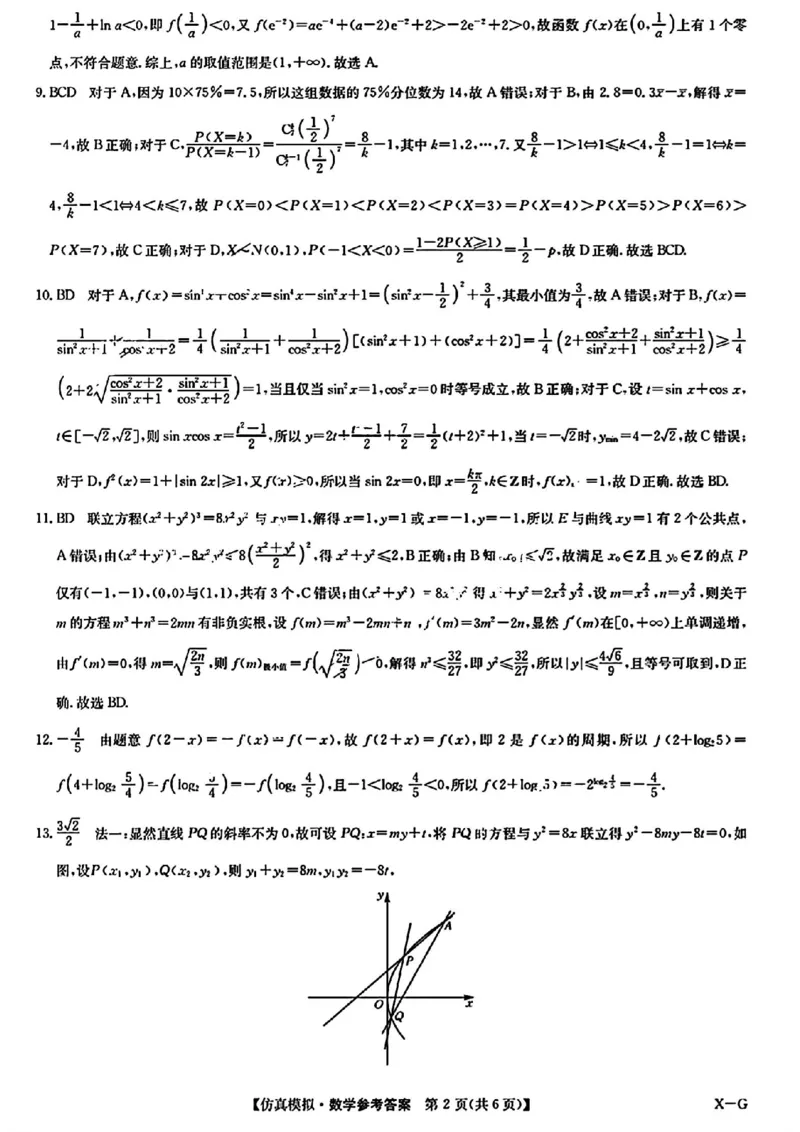 1-\frac{1}{a}+ln a<0,即 f(\frac{1}{a})<0,又 f(e^{-2})=ae^{-4}+(a-2)e^{-2}+2>-2e^{-2}+2>0,故函数 f(x)在(0,\frac{1}{a})上有 1 个零
点,不符合题意.综上,a 的取值范围是(1,+∞).故选 A.
9.BCD 对于 A,因为 10×75%=7.5,所以这组数据的 75%分位数为 14,故 A 错误;对于 B,由 2.8=0.3\bar{x}-\bar{x},解得 \bar{x}=
-4,故 B 正确;对于 C,\frac{P(X=k)}{P(X=k-1)}=\frac{C_7^k(\frac{1}{2})^7}{C_7^{k-1}(\frac{1}{2})^7}=\frac{8}{k}-1,其中 k=1,2,…,7.又\frac{8}{k}-1>1⇔1≤k<4,\frac{8}{k}-1=1⇔k=
4,\frac{8}{k}-1<1⇔4<k≤7,故 P(X=0)<P(X=1)<P(X=2)<P(X=3)=P(X=4)>P(X=5)>P(X=6)>
P(X=7),故 C 正确;对于 D,X~N(0,1),P(-1<X<0)=\frac{1-2P(X≥1)}{2}=\frac{1}{2}-p,故 D 正确.故选 BCD.
10.BD 对于 A,f(x)=sin^4x+cos^2x=sin^4x-sin^2x+1=(sin^2x-\frac{1}{2})^2+\frac{3}{4},其最小值为\frac{3}{4},故 A 错误;对于 B,f(x)=
\frac{1}{sin^2x+1}+\frac{1}{cos^2x+2}=\frac{1}{4}(\frac{1}{sin^2x+1}+\frac{1}{cos^2x+2})[(sin^2x+1)+(cos^2x+2)]=\frac{1}{4}(2+\frac{cos^2x+2}{sin^2x+1}+\frac{sin^2x+1}{cos^2x+2})≥\frac{1}{4}
(2+2\sqrt{\frac{cos^2x+2}{sin^2x+1}·\frac{sin^2x+1}{cos^2x+2}})=1,当且仅当 sin^2x=1,cos^2x=0 时等号成立,故 B 正确;对于 C,设 t=sin x+cos x,
t∈[-√2,√2],则 sin xcos x=\frac{t^2-1}{2},所以 y=2t+\frac{t^2-1}{2}+\frac{7}{2}=\frac{1}{2}(t+2)^2+1,当 t=-√2时,y_{min}=4-2√2,故 C 错误;
对于 D,f^2(x)=1+|sin 2x|≥1,又 f(x)≥0,所以当 sin 2x=0,即 x=\frac{kπ}{2},k∈Z 时,f(x) =1,故 D 正确.故选 BD.
11.BD 联立方程(x^2+y^2)^3=8x^2y^2 与 xy=1,解得 x=1,y=1 或 x=-1,y=-1,所以 E 与曲线 xy=1 有 2 个公共点,
A 错误;由(x^2+y^2)^3=8x^2y^2≤8(\frac{x^2+y^2}{2})^2,得 x^2+y^2≤2,B 正确;由 B 知|x_0|≤√2,故满足 x_0∈Z 且 y_0∈Z 的点 P
仅有(-1,-1),(0,0)与(1,1),共有 3 个,C 错误;由(x^2+y^2) =8x^2y^2 得 x^2+y^2=2x^{\frac{2}{3}}y^{\frac{2}{3}},设 m=x^{\frac{2}{3}},n=y^{\frac{2}{3}},则关于
m 的方程 m^3+n^3=2mn 有非负实根,设 f(m)=m^3-2mn+n ,f'(m)=3m^2-2n,显然 f'(m)在[0,+∞)上单调递增,
由 f'(m)=0,得 m=\sqrt{\frac{2n}{3}},则 f(m)_{极小值}=f(\sqrt{\frac{2n}{3}})≤0,解得 n^3≤\frac{32}{27},即 y^2≤\frac{32}{27},所以|y|≤\frac{4√6}{9},且等号可取到,D 正
确.故选 BD.
12.-\frac{4}{5} 由题意 f(2-x)=-f(x)=f(-x),故 f(2+x)=f(x),即 2 是 f(x)的周期.所以 f(2+log_25)=
f(4+log_2\frac{5}{4})=f(log_2\frac{5}{4})=-f(log_2\frac{4}{5}),且-1<log_2\frac{4}{5}<0,所以 f(2+log_25)=-2^{log_2\frac{4}{5}}=-\frac{4}{5}.
13.\frac{3√2}{2} 法一:显然直线 PQ 的斜率不为 0,故可设 PQ:x=my+t,将 PQ 的方程与 y^2=8x 联立得 y^2-8my-8t=0,如
图,设P(x_1,y_1),Q(x_2,y_2),则 y_1+y_2=8m,y_1y_2=-8t.
y
A
P
O
x
Q
【仿真模拟·数学参考答案 第 2 页(共 6 页)】
X-G